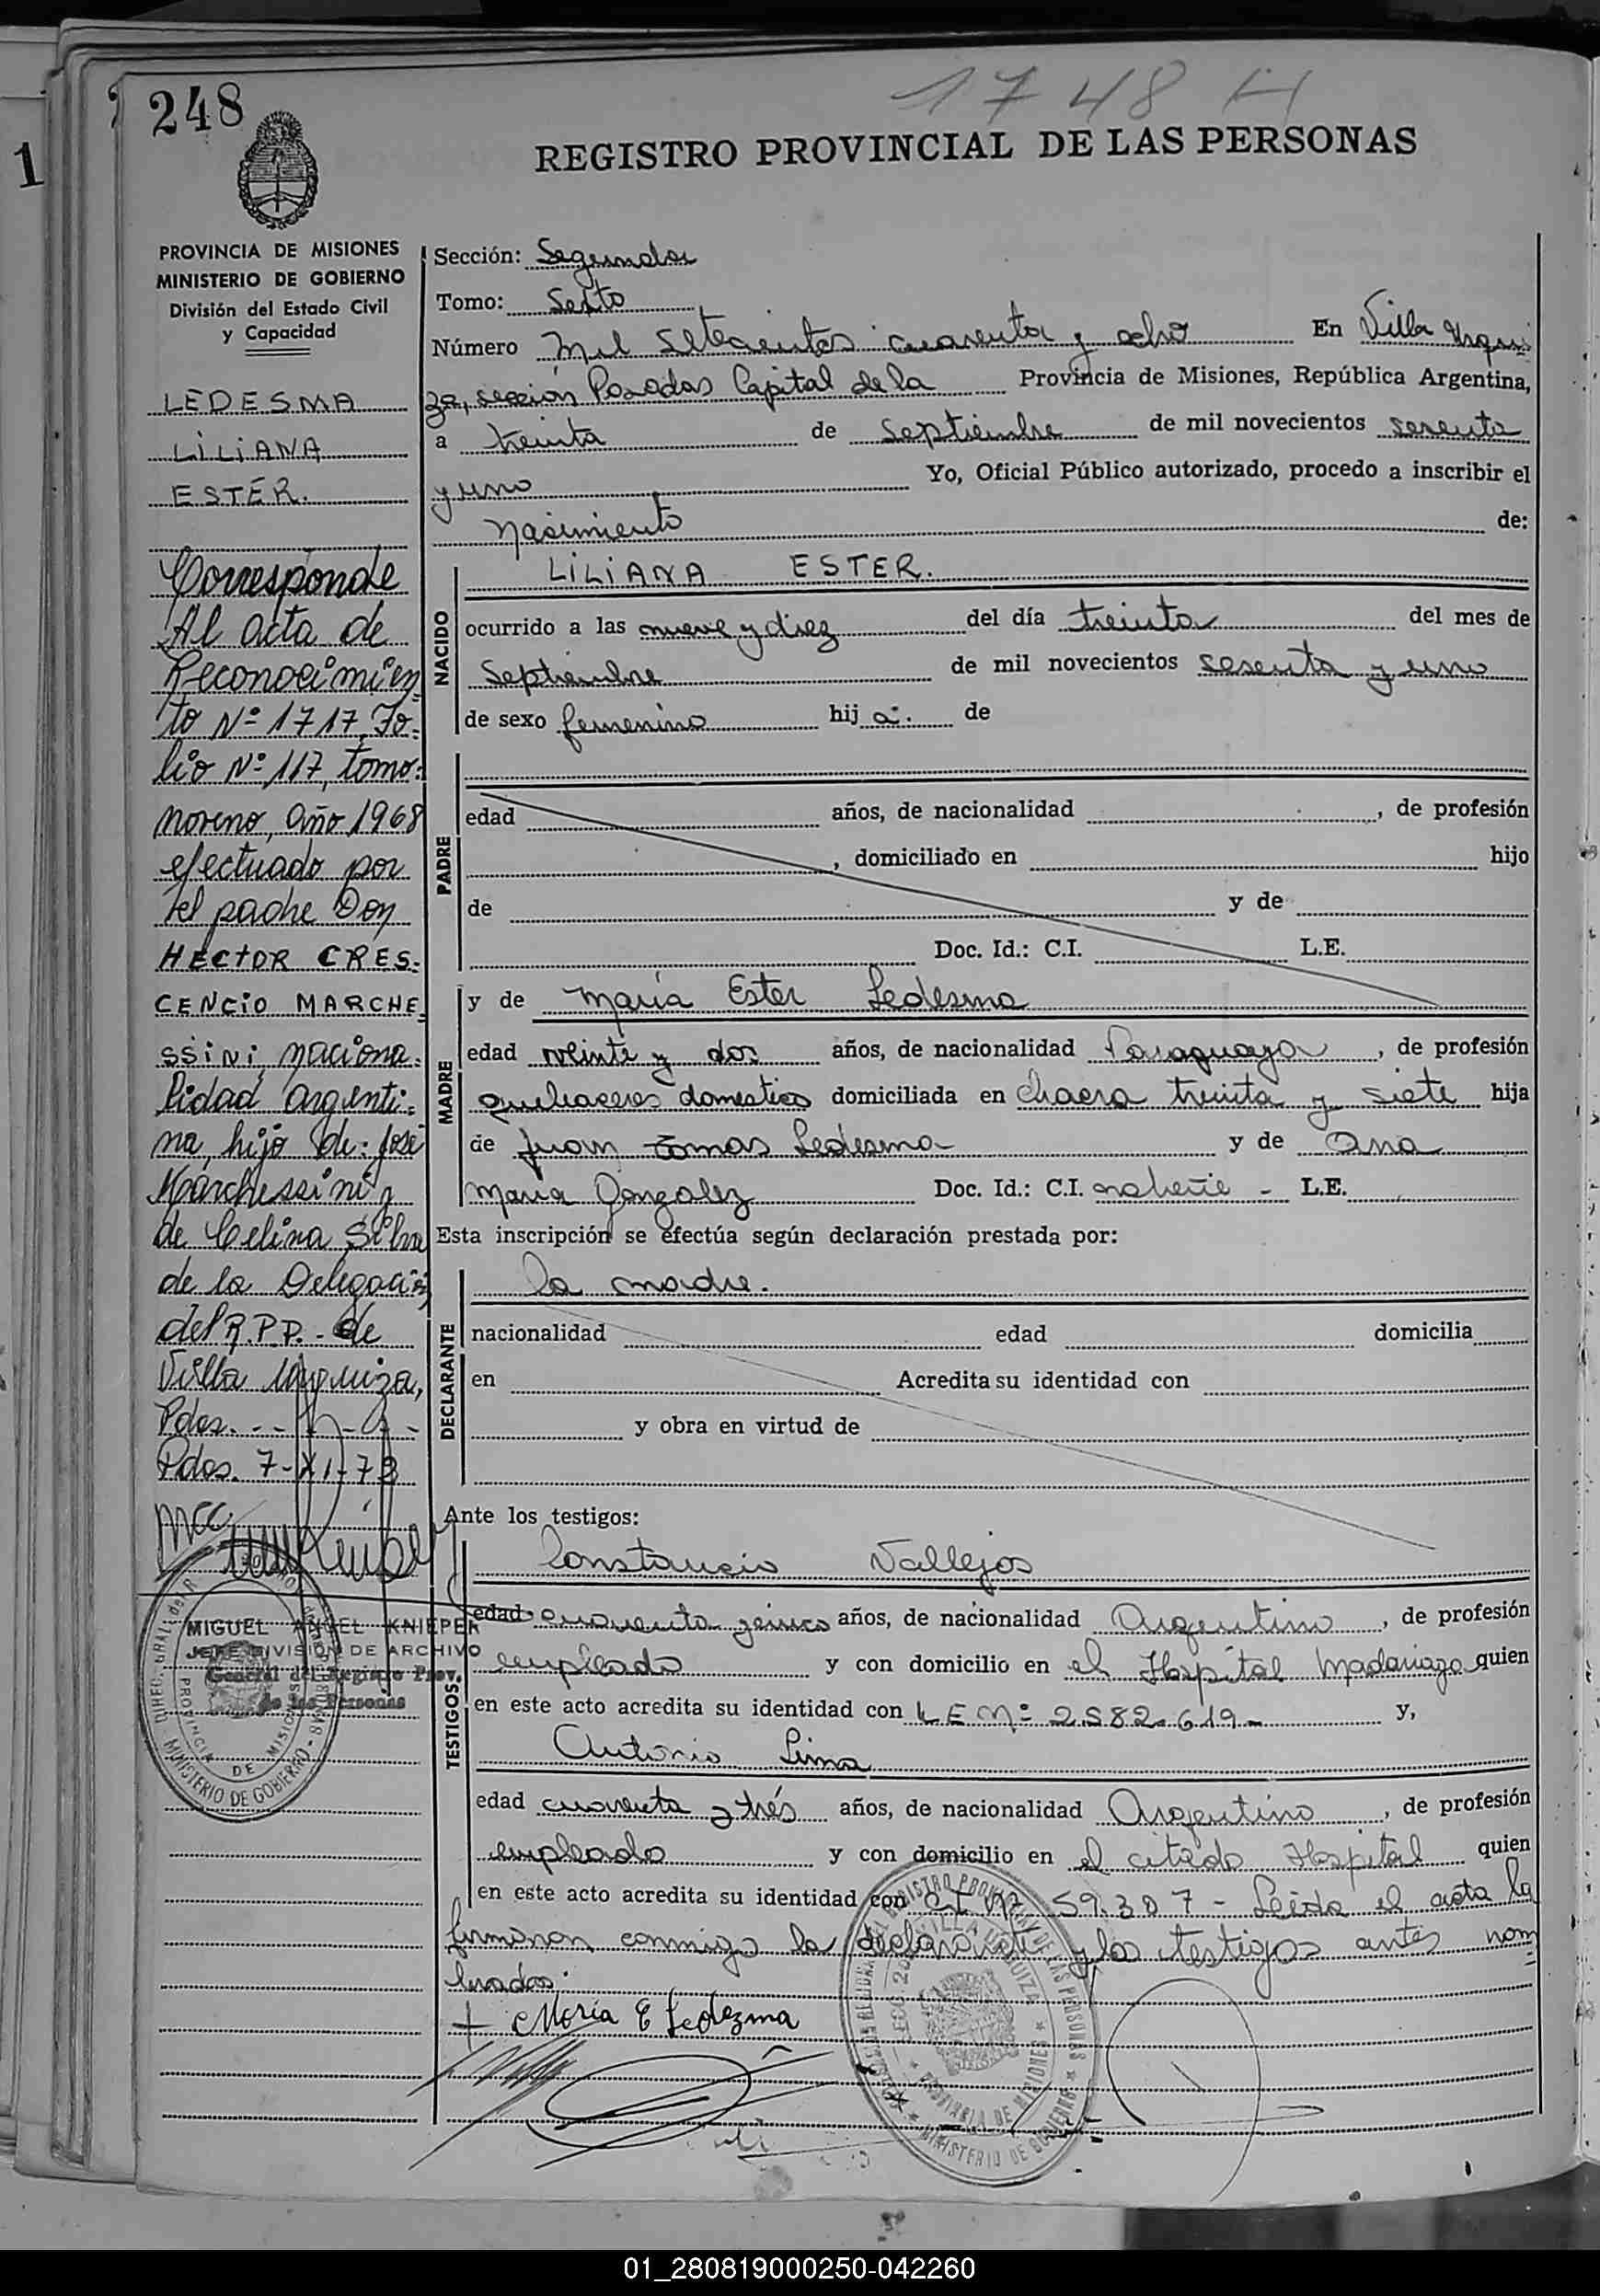 248
1748 H
1
REGISTRO PROVINCIAL DE LAS PERSONAS
PROVINCIA DE MISIONES
MINISTERIO DE GOBIERNO
División del Estado Civil
y Capacidad
LEDESMA
LILIANA
ESTER.
Corresponde
Al acta de
Reconocimien
to Nº 1717, Fo-
lio Nº 117, tomo:
moreno, año 1968
efectuado por
el padre Don
HECTOR CRES-
CENCIO MARCHE
SSINI, naciona-
lidad argenti-
na, hijo de: José
Marchessini y
de Celina Silva
de la Delegació
del R.P.P. - de
Villa Urquiza,
Pdas. - -
Pdas. 7-XI-73
MCC
MIGUEL ANGEL KNIEPER
JEFE DIVISION DE ARCHIVO
General del Registro Prov.
de las Personas
PROVINCIA DE MISIONES
MINISTERIO DE GOBIERNO
Sección: Segunda
Tomo: Sexto
Número Mil setecientos cuarenta y ocho En Villa Urqui
za, sección Posadas Capital de la Provincia de Misiones, República Argentina,
a treinta de Septiembre de mil novecientos sesenta
y uno Yo, Oficial Público autorizado, procedo a inscribir el
Nasimiento de:
NACIDO
LILIANA ESTER.
ocurrido a las nueve y diez del día treinta del mes de
Septiembre de mil novecientos sesenta y uno
de sexo femenino hij a. de
PADRE
edad años, de nacionalidad , de profesión
, domiciliado en hijo
de y de
Doc. Id.: C.I. L.E.
MADRE
y de María Ester Ledesma
edad veinte y dos años, de nacionalidad Paraguaya , de profesión
quehaceres domestico domiciliada en Chacra treinta y siete hija
de Juan tomas Ledesma y de Ana
María Gonzalez Doc. Id.: C.I. L.E.
Esta inscripción se efectúa según declaración prestada por:
DECLARANTE
la madre.
nacionalidad edad domicilia
en Acredita su identidad con
y obra en virtud de
Ante los testigos:
TESTIGOS
Constancio Vallejos
edad cuarenta y cinco años, de nacionalidad Argentino , de profesión
empleado y con domicilio en el Hospital Madariaga quien
en este acto acredita su identidad con L E Nº 2582.619- y,
Antonio Lima
edad cuarenta y trés años, de nacionalidad Argentino , de profesión
empleado y con domicilio en el citado Hospital quien
en este acto acredita su identidad con CI Nº 59.307 - Leída el acta la
firmaron conmigo la declarante y los testigos antes nom
brados.
+ María E Ledezma
PROVINCIA DE MISIONES
MINISTERIO DE GOBIERNO
01_280819000250-042260